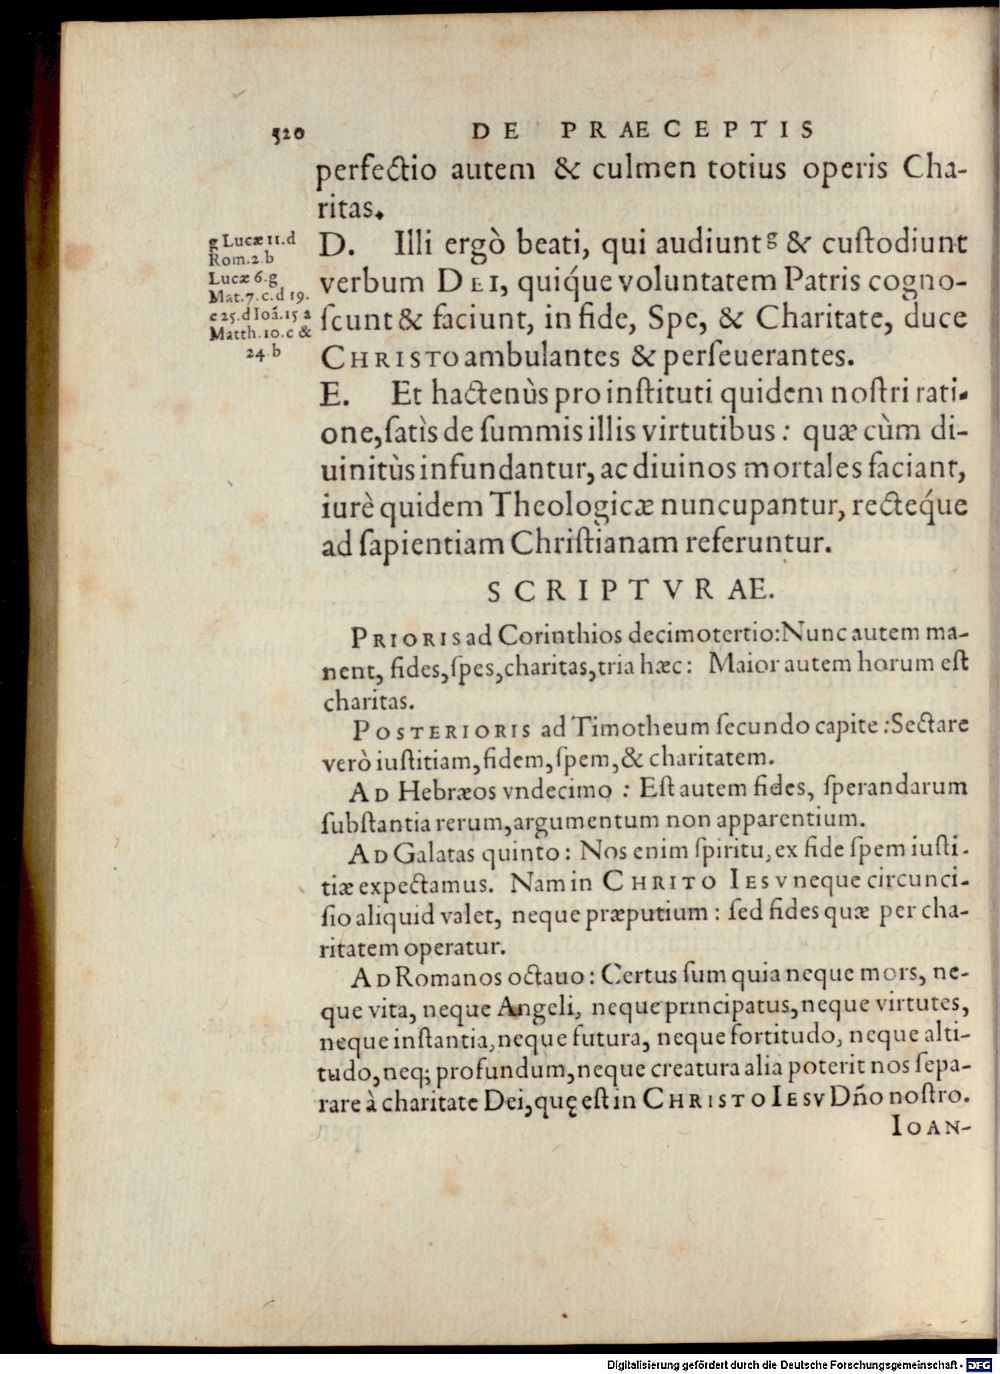 520 DE PRAECEPTIS
perfectio autem & culmen totius operis Cha-
ritas.
g Lucæ 11.d
Rom.2.b
Lucæ 6.g
Mat.7.c.d 19.
c 25.d Ioã.15 a
Matth.10.c &
24.b
D. Illi ergò beati, qui audiunt g & cuſtodiunt
verbum DEI, quíque voluntatem Patris cogno-
ſcunt & faciunt, in fide, Spe, & Charitate, duce
CHRISTO ambulantes & perſeuerantes.
E. Et hactenùs pro inſtituti quidem noſtri rati-
one, ſatìs de ſummis illis virtutibus: quæ cùm di-
uinitùs infundantur, ac diuinos mortales faciant,
iurè quidem Theologicæ nuncupantur, rectéque
ad ſapientiam Chriſtianam referuntur.
SCRIPTVRAE.
PRIORIS ad Corinthios decimotertio: Nunc autem ma-
nent, fides, ſpes, charitas, tria hæc: Maior autem horum eſt
charitas.
POSTERIORIS ad Timotheum ſecundo capite: Sectare
verò iuſtitiam, fidem, ſpem, & charitatem.
AD Hebræos vndecimo: Eſt autem fides, ſperandarum
ſubſtantia rerum, argumentum non apparentium.
AD Galatas quinto: Nos enim ſpiritu, ex fide ſpem iuſti-
tiæ expectamus. Nam in CHRITO IESV neque circunci-
ſio aliquid valet, neque præputium: ſed fides quæ per cha-
ritatem operatur.
AD Romanos octauo: Certus ſum quia neque mors, ne-
que vita, neque Angeli, neque principatus, neque virtutes,
neque inſtantia, neque futura, neque fortitudo, neque alti-
tudo, neq; profundum, neque creatura alia poterit nos ſepa-
rare à charitate Dei, quę eſt in CHRISTO IESV Dño noſtro.
IOAN-
Digitalisierung gefördert durch die Deutsche Forschungsgemeinschaft - DFG